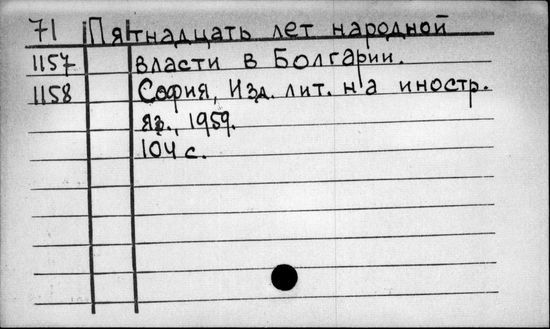 71 Пятнадцать лет народной
1157 власти в Болгарии.
1158 София, Изд. лит. на иностр.
яз., 1959.
104 с.